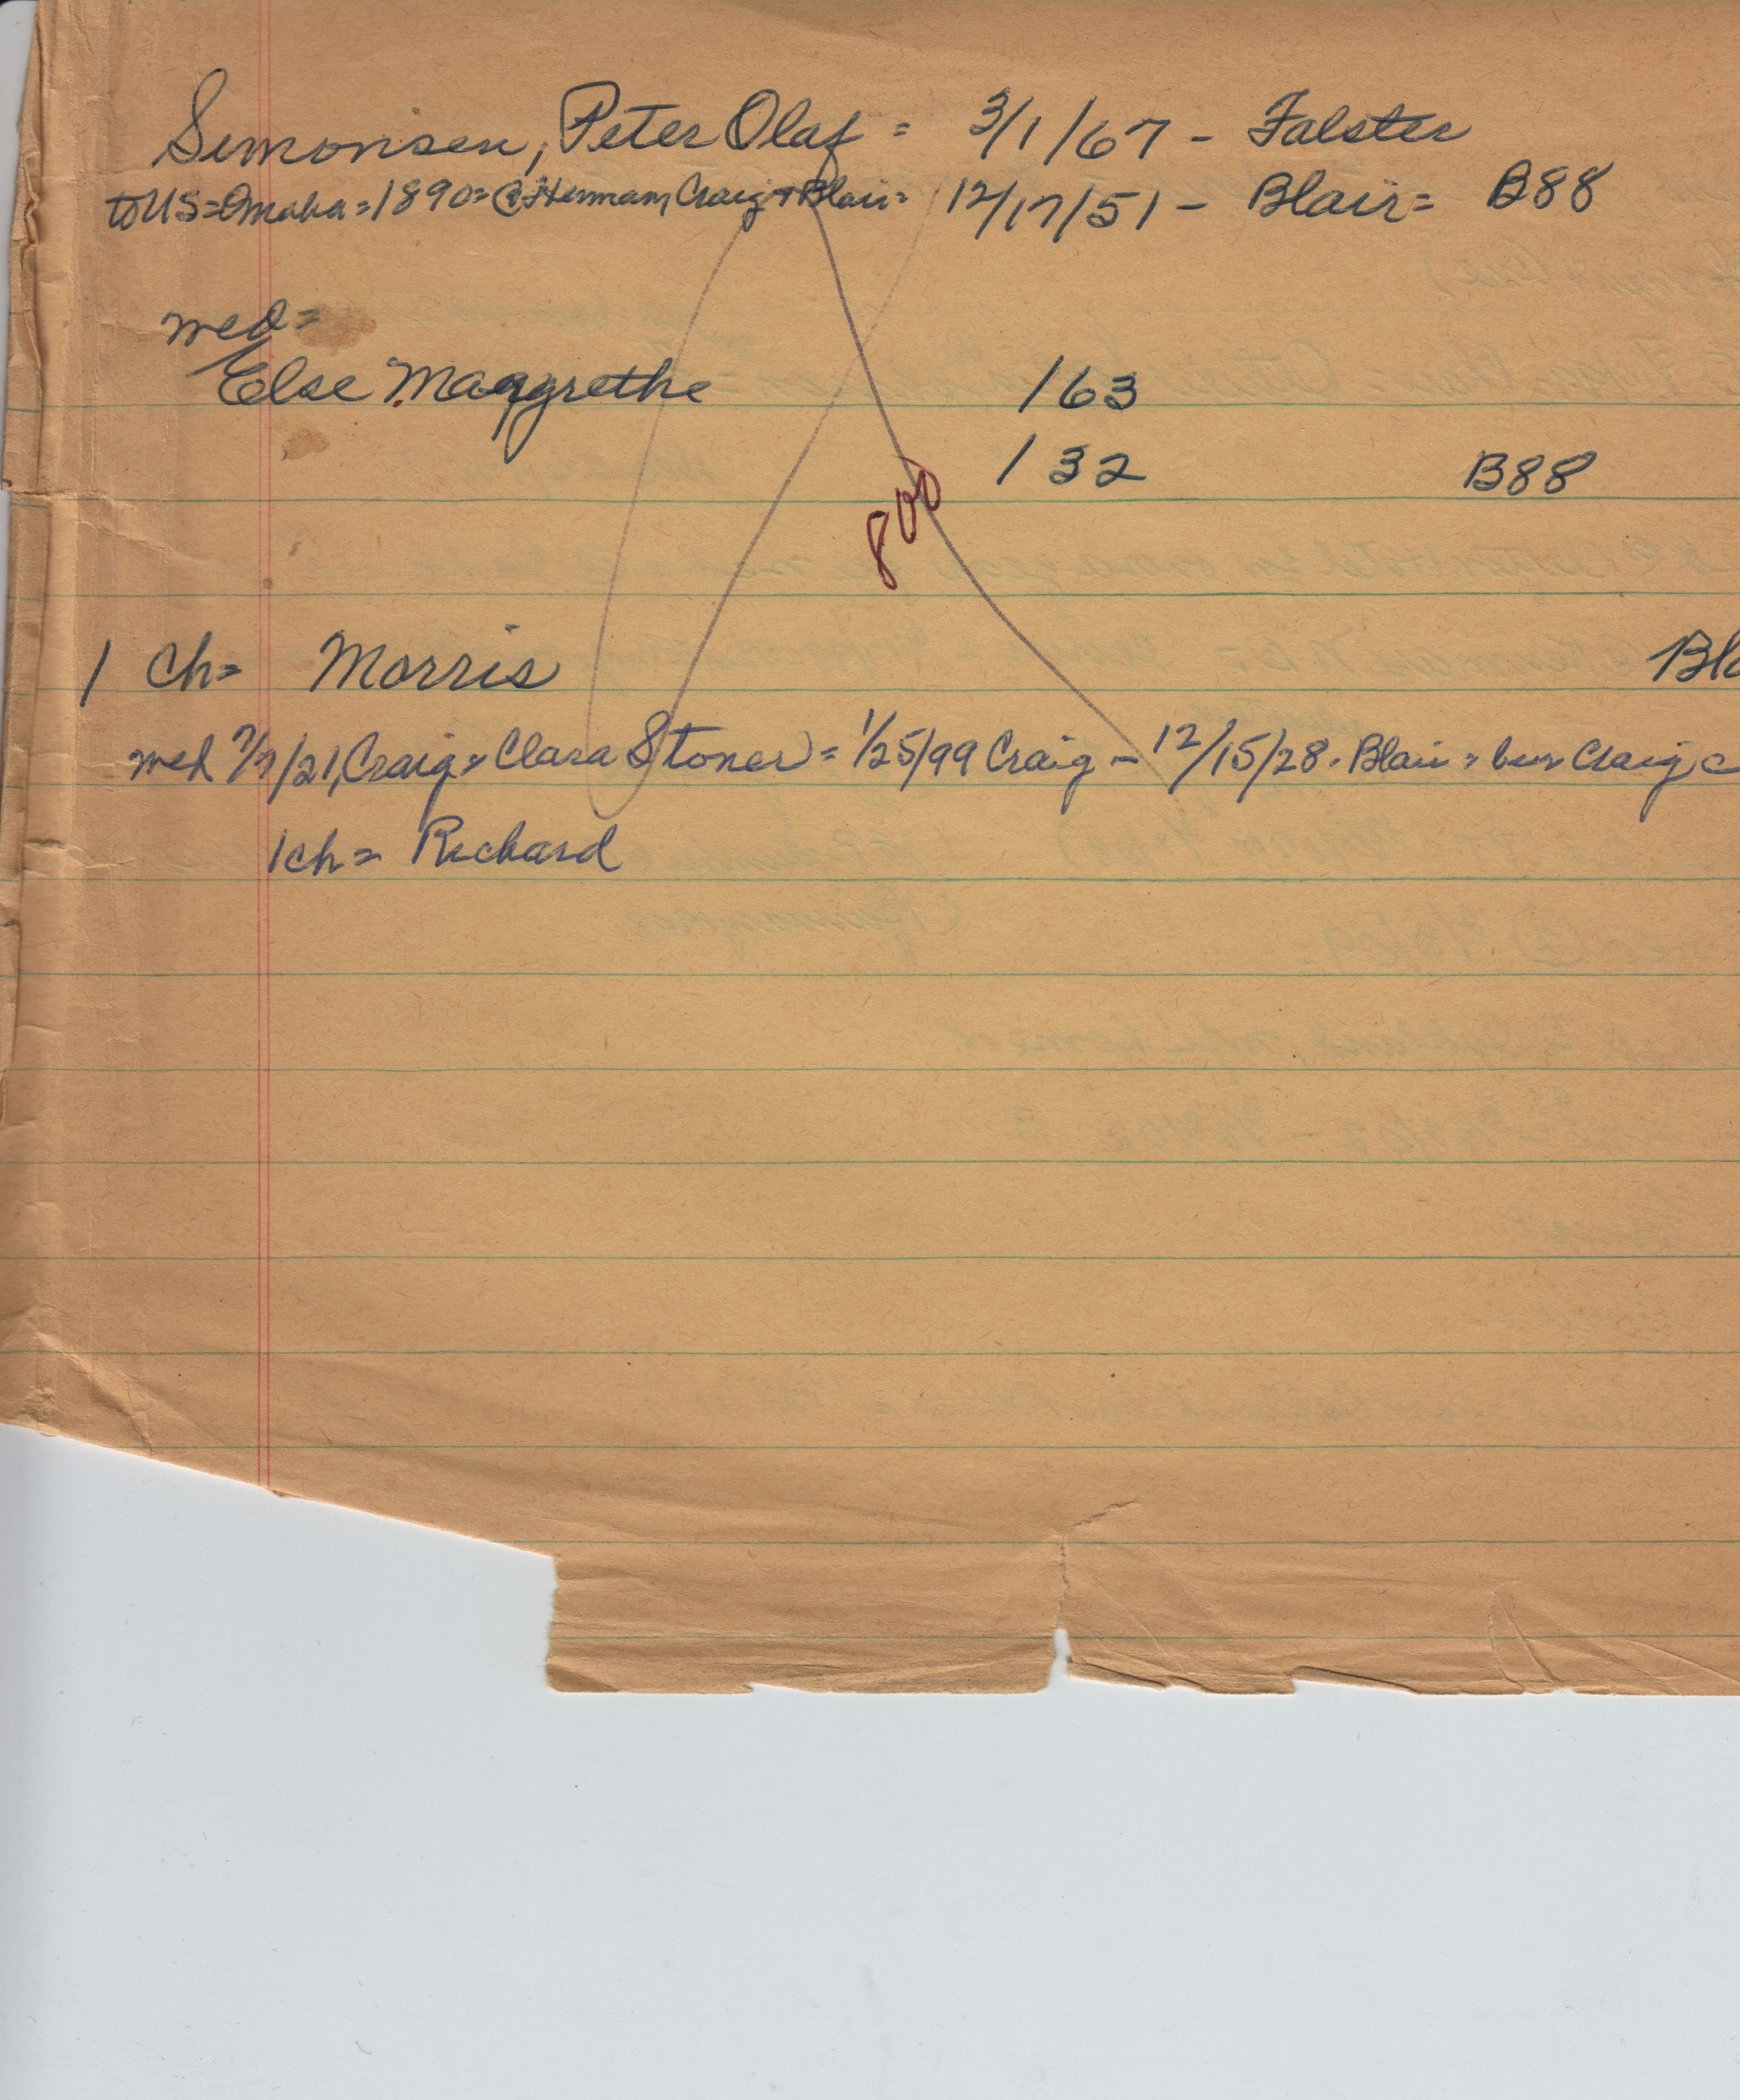 Simonsen, Peter Olaf = 3/1/67 - Falster
to US = Omaha = 1890 = @ Herman, Craig + Blair = 12/17/51 - Blair = B88
med =
Else Margrethe 163
132 B88
800
1 ch = Morris Bla
med 7/7/21, Craig = Clara Stoner) = 1/25/99 Craig - 12/15/28 . Blair = bur Craig c
1 ch = Richard